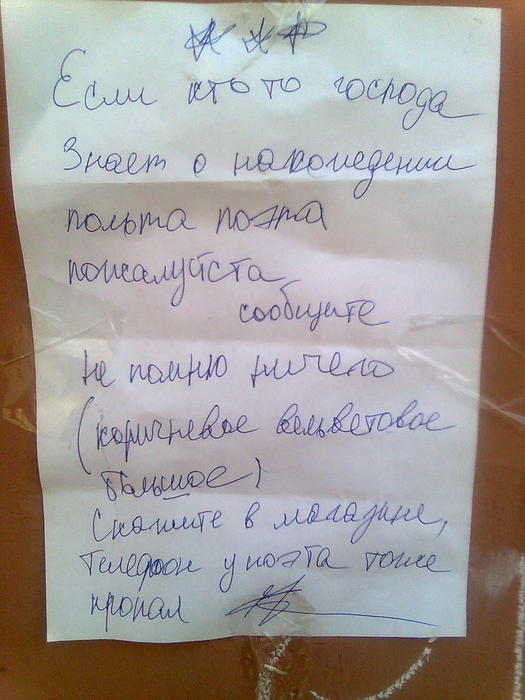 ***
Если кто то господа
Знает о нахождении
польта поэта
пожалуйста
сообщите
Не помню ничего
(коричневое вельветовое
большое)
Скажите в магазине,
Телефон у поэта тоже
пропал